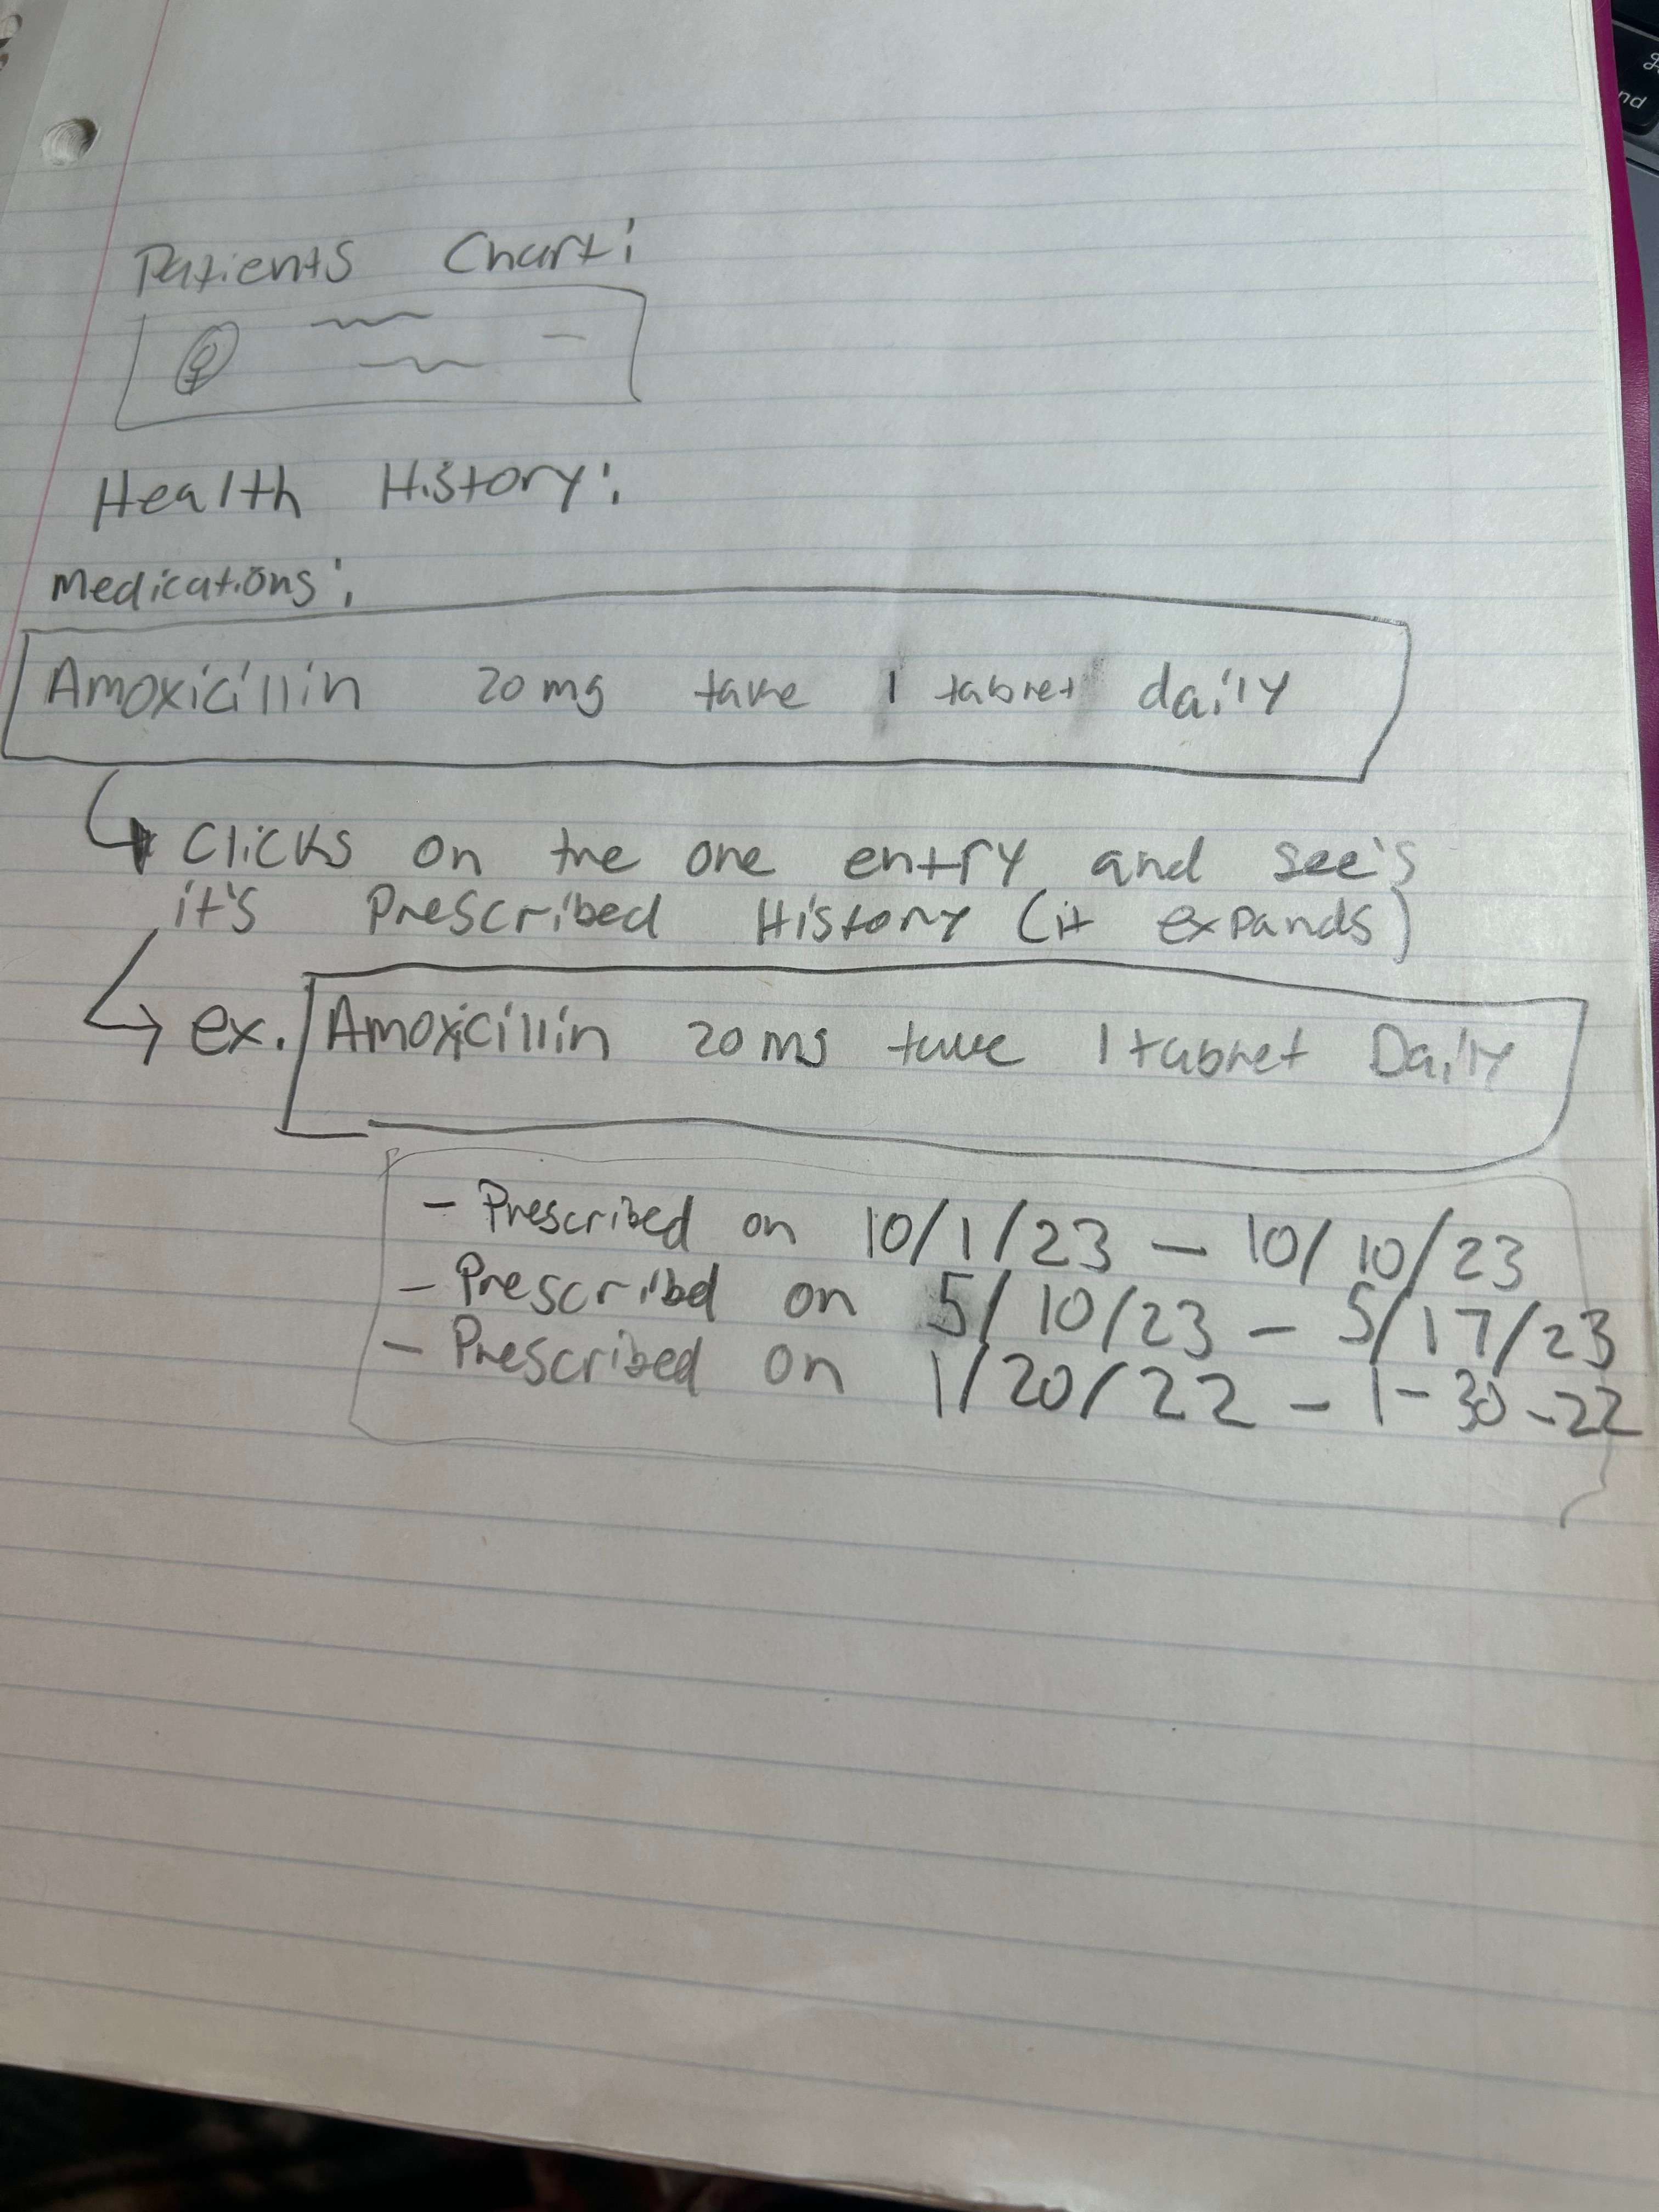 Patients Chart:
Health History:
Medications:
Amoxicillin 20mg take 1 tablet daily
Clicks on the one entry and see's
it's Prescribed History (it expands)
ex. Amoxicillin 20mg take 1 tablet Daily
- Prescribed on 10/1/23 - 10/10/23
- Prescribd on 5/10/23 - 5/17/23
- Prescribed on 1/20/22 - 1-30-22
nd